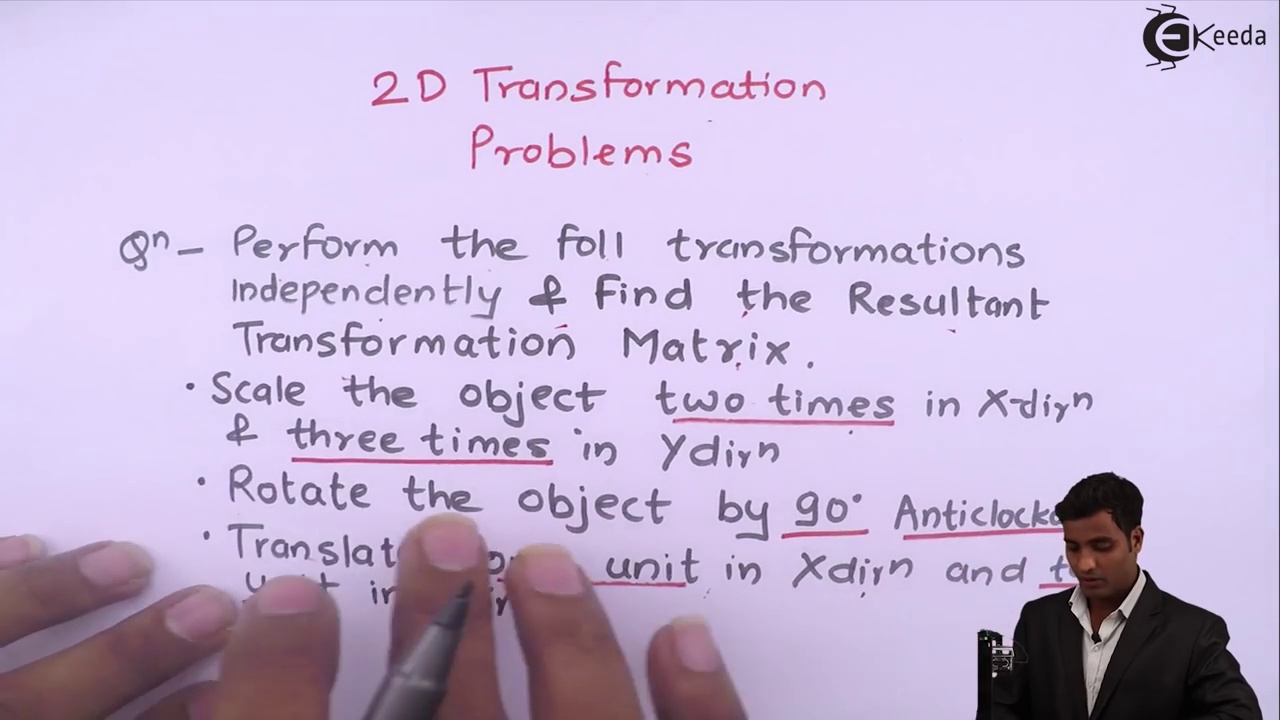 EKeeda
2D Transformation
Problems
Qn - Perform the foll transformations
Independently & Find the Resultant
Transformation Matrix.
• Scale the object two times in X-dirn
& three times in Ydirn
• Rotate the object by 90°
unit in Xdirn and